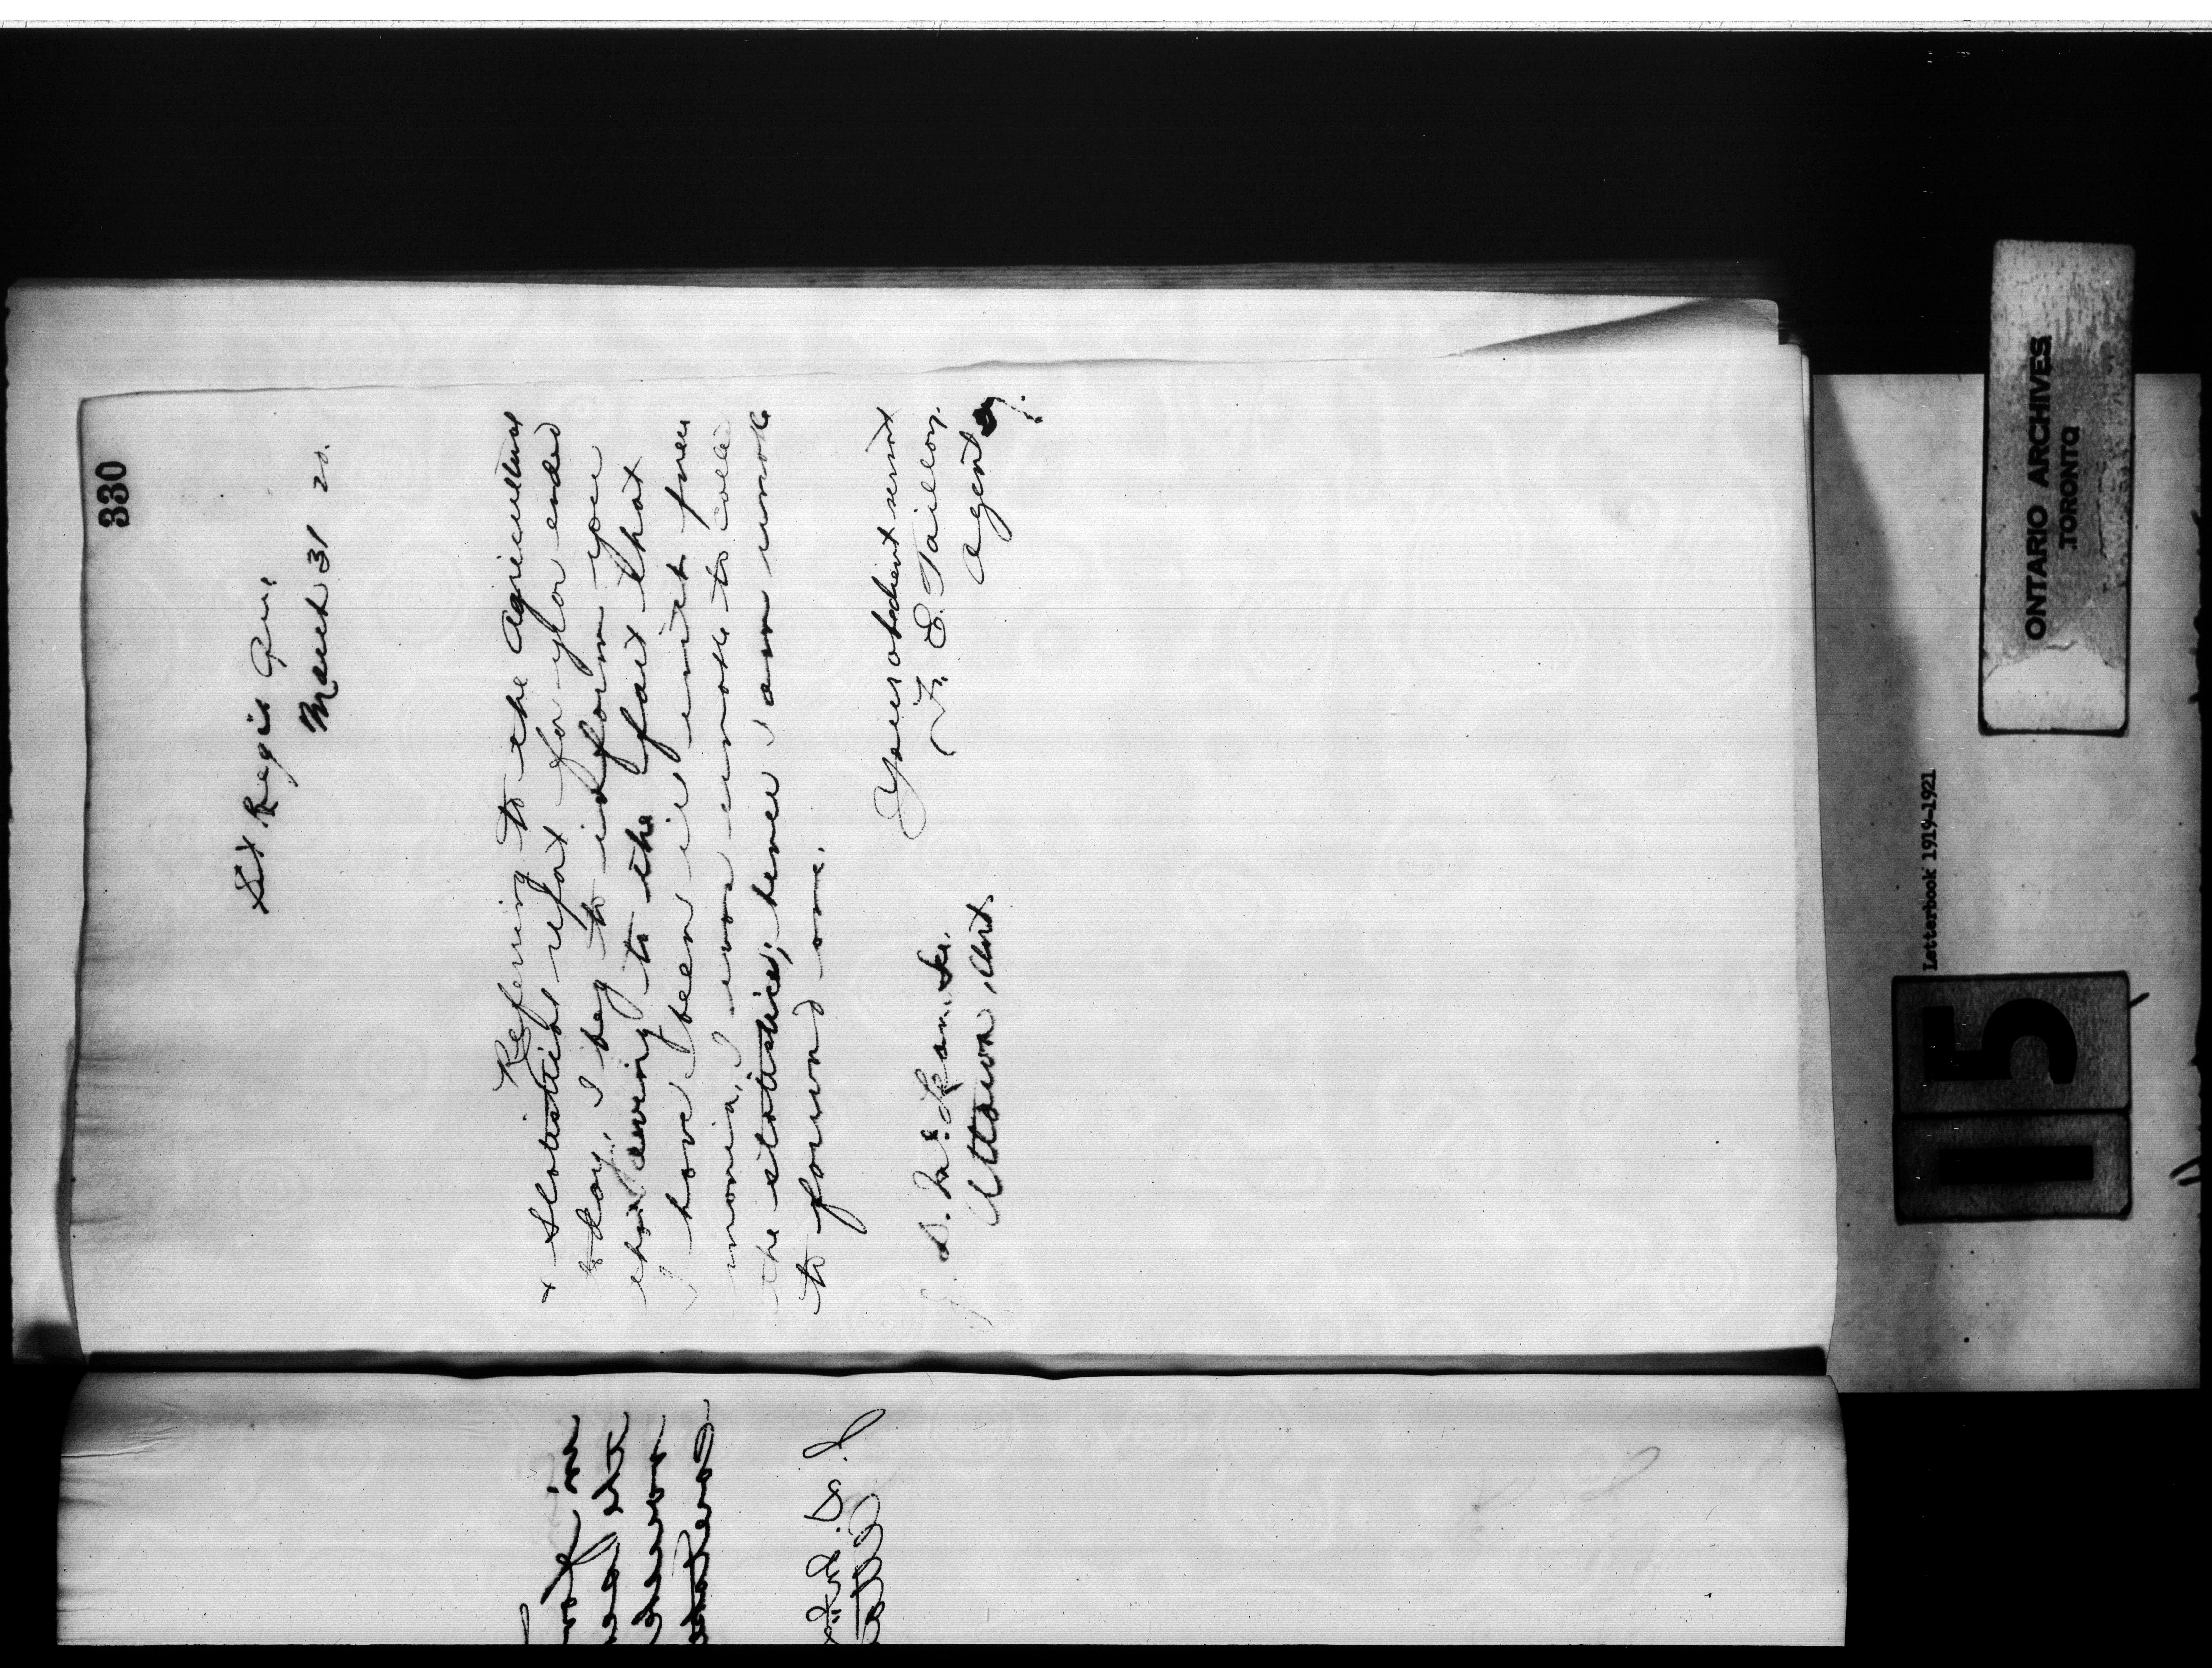 330
St Regis Que.
March 31 20.
Referring to the Agricultural
& Statistical report for year ended
to day, I beg to inform you
that owing to the fact that
I have been ill with pneu
monia, I was unable to colle
the statistics; hence I am unable
to forward one.
Your obedient servant
F. E. Taillon,
Agent
J. D. McLean. Sec.
Ottawa, Ont.
ONTARIO ARCHIVES
TORONTO
Letterbook 1919-1921
15